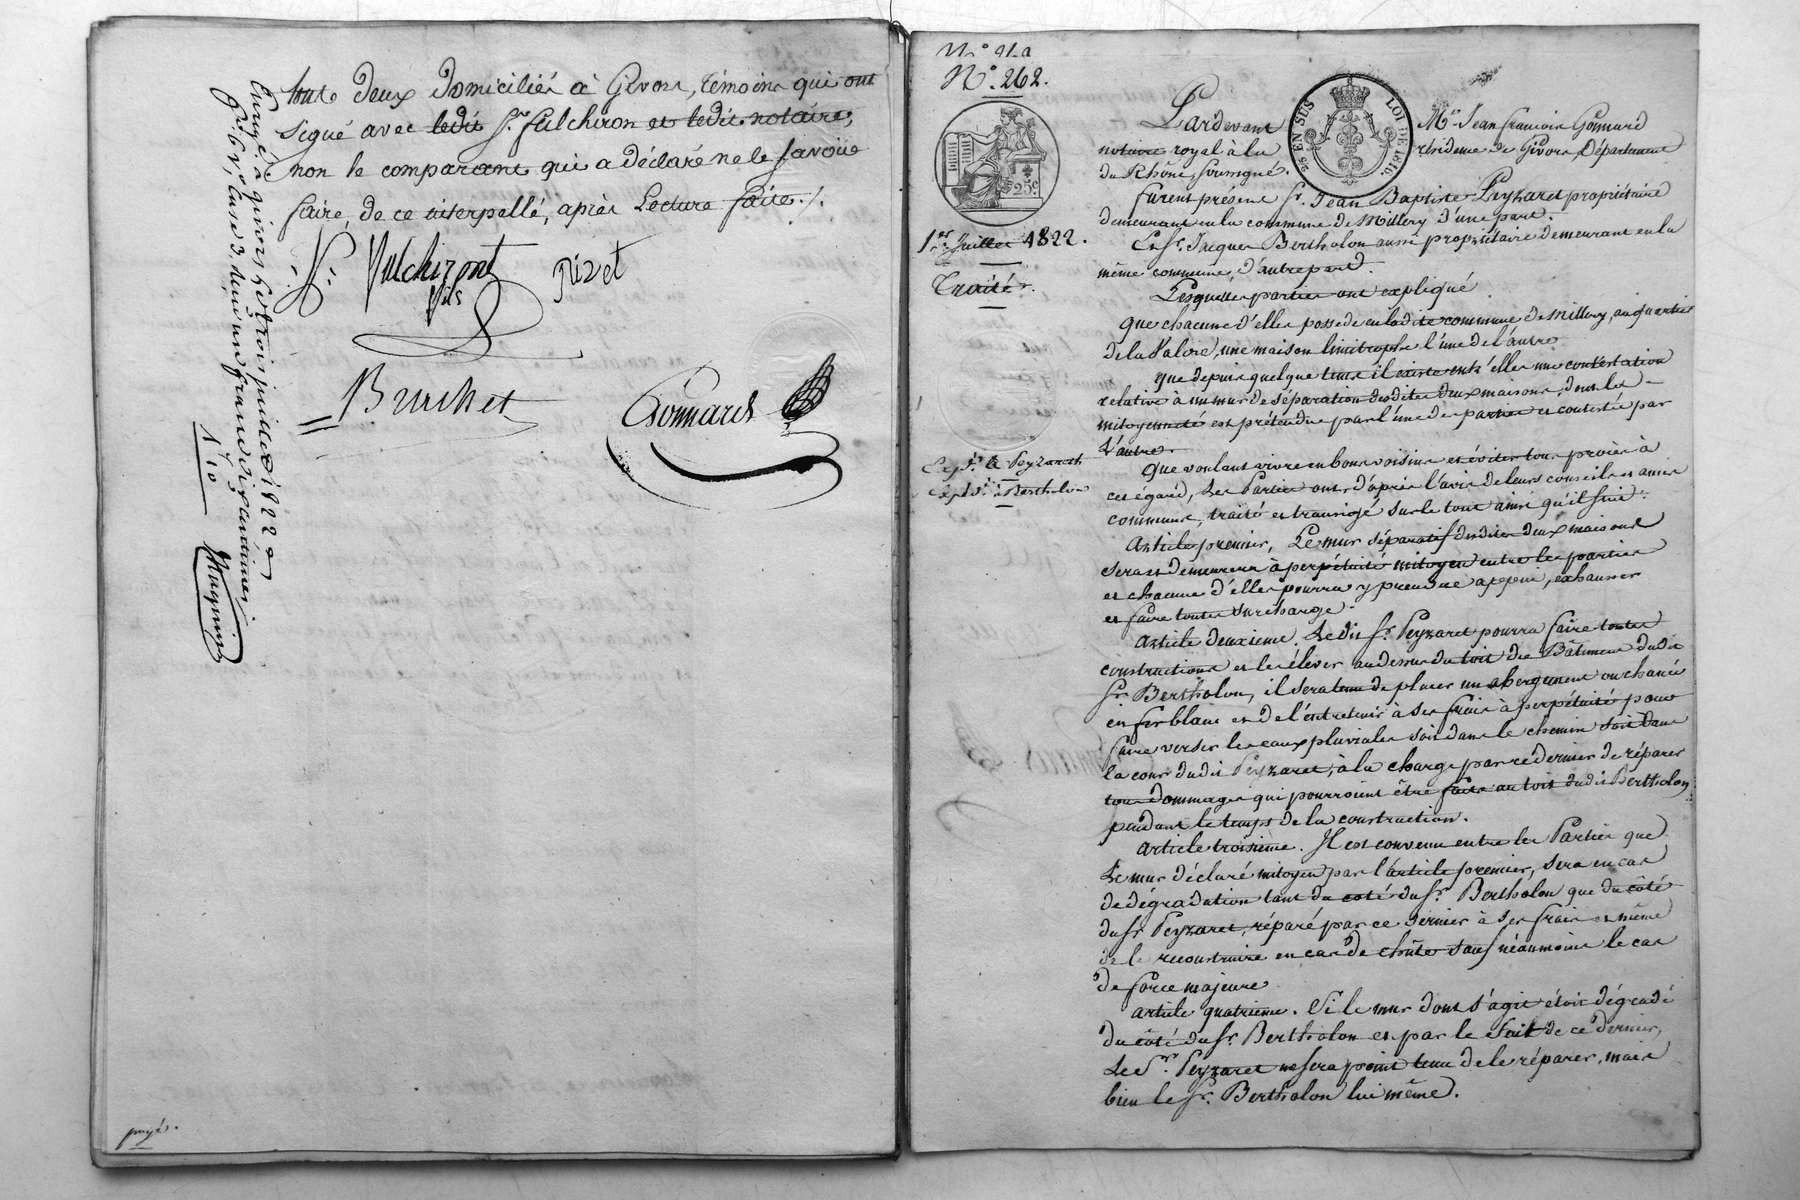 tous deux domiciliés à Givors, témoins qui ont
signé avec ledit Sr. fulchiron et ledit notaire,
non le comparant qui a déclaré ne le savoir
faire, de ce interpellé, après Lecture faite./.
fulchiront Rivet
fils
Burchet
Gonnard
Enrgé à givors le trois juillet 1822
case 3. reçu un franc dix centimes
1,10
payé.
N° 262.
25c.
1er Juillet 1822.
Traité.
Expon. à Peyzaret
Expon. à Bertholon
EN SUS
LOI DE 1816.
Pardevant Me. Jean francois Gonnard
notaire royal à la résidence de Givors, Département
du Rhône, soussigné.
furent présent Sr. Jean Baptiste Peyzaret propriétaire
demeurant en la commune de Millery d'une part.
Et Sr. Jacques Bertholon aussi propriétaire demeurant en la
même commune, d'autre part.
Lesquelles parties ont expliqué
que chacune d'elles possede en ladite commune de Millery, au quartier
de la Valoré, une maison limitrophe l'une de l'autre
que depuis quelque tems il existe entr'elles une contestation
relative à un mur de séparation desdites deux maisons, dont la
mitoyenneté est prétendue par l'une des parties et contestée par
L'autre.
que voulant vivre en bons voisins et éviter tous procès à
cet égard, Les Parties ont, d'après l'avis de leurs conseils et amis
communs, traité et transigé sur le tout ainsi qu'il suit:
Article premier, Le mur séparatif desdites deux maisons
sera et demeurera à perpétuité mitoyen entre les parties
et chacune d'elles pourra y prendre appui, exhausser
et faire toutes surcharge.
Article deuxieme. Le dit Sr. Peyzaret pourra faire toutes
constructions et les élever au dessus du toit des Bâtimens dudit
Sr. Bertholon, il sera tenu de placer un abergement ou chanée
en fer blanc et de l'entretenir à ses frais à perpétuité pour
faire verser les eaux pluviales soit dans le chemin soit dans
la cour dudit Peyzaret, à la charge par ce dernier de réparer
tous dommages qui pourroient être faits au toit dudit Bertholon
pendant le temps de la construction.
Article troisième. Il est convenu entre les Parties que
Le mur déclaré mitoyen par l'article premier, sera en cas
de dégradation tant du coté du Sr. Bertholon que du côté
du Sr Peyzaret, réparé par ce dernier à ses frais et même
de le reconstruire en cas de chûte sauf néanmoins le cas
de force majeure
Article quatrieme. Si le mur dont s'agit étoit dégradé
du côté du Sr. Bertholon et par le fait de ce dernier,
Le Sr. Peyzaret ne sera point tenu de le réparer, mais
bien le Sr. Bertholon lui même.